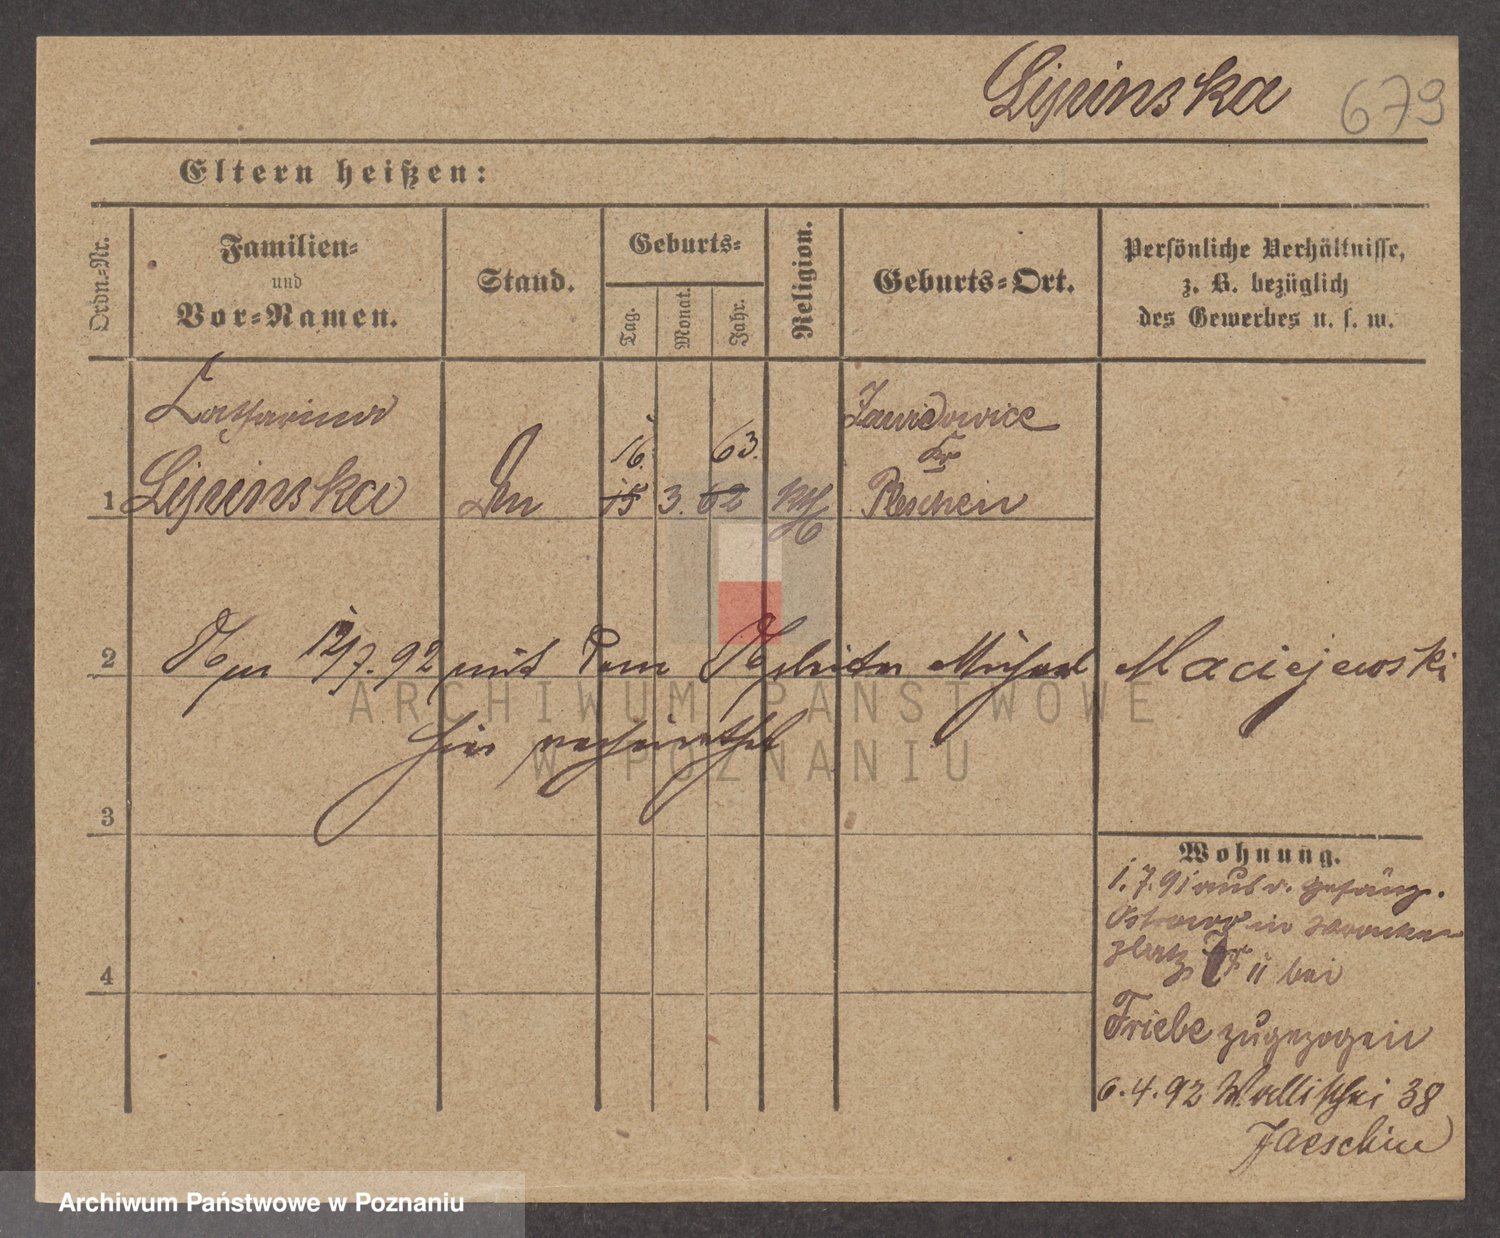 Lipinska 679
Eltern heißen:
Ordn.=Nr.
Familien=
und
Vor=Namen.
Stand.
Geburts=
Tag.
Monat.
Jahr.
Religion.
Geburts=Ort.
Persönliche Verhältnisse,
z. B. bezüglich
des Gewerbes u. s. w.
Catharina
Lipinska
16. 63.
1 15 3. 62 kth
Zawidowice
Kr
Pleschen
2 Am 12/7.92 mit dem Arbeiter Michael Maciejewski
hier verheirathet
3
4
Wohnung.
1.7.91 aus d. Gefäng.
Ostrowo in Wronker
platz bei
Friebe zugezogen
6.4.92 Wallischei 38
Jaeschin
ARCHIWUM PAŃSTWOWE
W POZNANIU
Archiwum Państwowe w Poznaniu